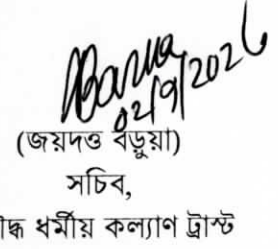 Barua
02/9/2026
(জয়দত্ত বড়ুয়া)
সচিব,
দ্ধ ধর্মীয় কল্যাণ ট্রাস্ট